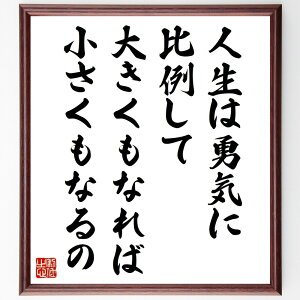 人生は勇気に
比例して
大きくもなれば
小さくもなるの